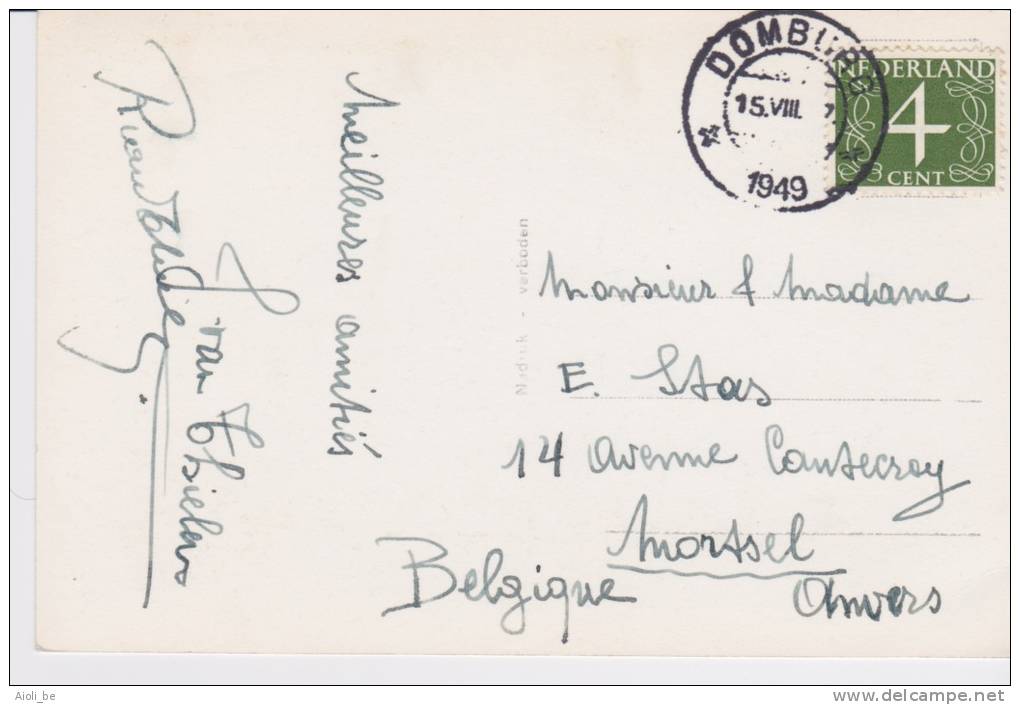 DOMBURG
15.VIII.
1949
NEDERLAND
4
CENT
Meilleures amitiés
van Thielen
Nadruk - verboden
Monsieur & Madame
E. Stas
14 Avenue Cantecroy
Mortsel
Anvers
Belgique
Aioli_be
www.delcampe.net